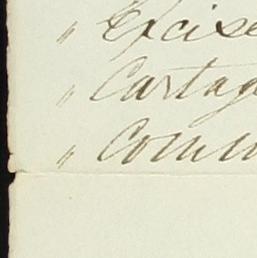 " Excise
" Cartag
" Comm